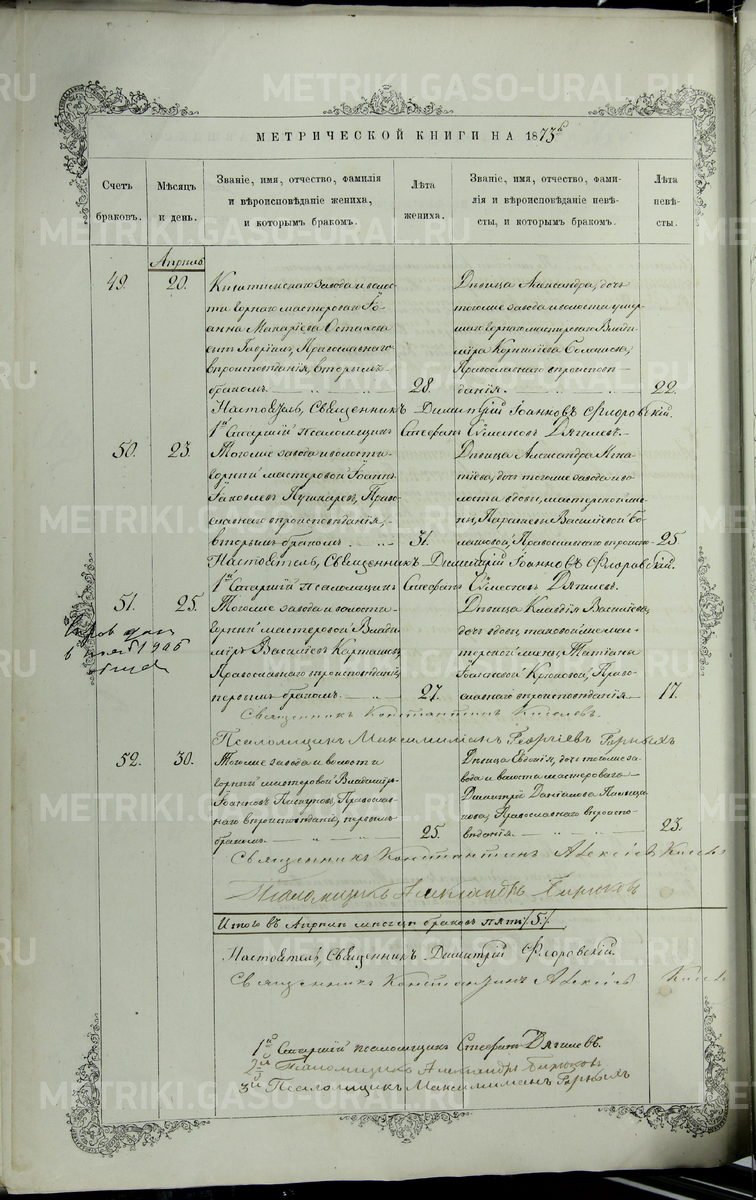 МЕТРИЧЕСКОЙ КНИГИ НА 1873й
Счетъ браковъ.
Мѣсяцъ и день.
Званіе, имя, отчество, фамилія
и вѣроисповѣданіе жениха,
и которымъ бракомъ.
Лѣта жениха.
Званіе, имя, отчество, фами-
лія и вѣроисповѣданіе невѣ-
сты, и которымъ бракомъ.
Лѣта невѣ-
сты.
Апрѣль
49.
20.
завода и волос-
ти горнаго мастероваго Іо-
анна Макаріева
сынъ Гавріилъ, Православнаго
вѣроисповѣданія, вторымъ
бракомъ.
28.
Дѣвица Александра, дочь
тогоже завода и волости умер-
шаго горнаго мастероваго Влади-
міра
Православнаго вѣроисповѣ-
данія.
22.
Настоятель, Священникъ Димитрій Іоанновъ Флоровскій.
1й Старшій псаломщикъ Стефанъ Дягилевъ.
50.
23.
Тогоже завода и волости
горный мастеровой Іоаннъ
Іаковлевъ Пушкаревъ, Право-
славнаго вѣроисповѣданія,
вторымъ бракомъ.
31.
Дѣвица Александра Игна-
тіева, дочь тогоже завода и во-
лости вдовы, мастерской же-
ны, Параскевы Василіевой
Православнаго вѣроиспо-
25
Настоятель, Священникъ Димитрій Іоанновъ Флоровскій.
1й Старшій псаломщикъ Стефанъ Дягилевъ.
51.
25.
Тогоже завода и волости
горный мастеровой Влади-
міръ Василіевъ Карташовъ,
Православнаго вѣроисповѣданія,
первымъ бракомъ.
27.
Дѣвица Клавдія Василіева,
дочь вдовы таковой же мас-
терской жены, Татіаны
Іоанновой Крюковой, Право-
славнаго вѣроисповѣданія
17.
1906
Священникъ Константинъ Киселевъ.
Псаломщикъ Максимиліанъ Георгіевъ
52.
30.
Тогоже завода и волости
горный мастеровой Владиміръ
Іоанновъ Православ-
наго вѣроисповѣданія, первымъ
бракомъ.
25.
Дѣвица Евдокія, дочь тогоже за-
вода и волости мастероваго
Димитрія Даніилова
Православнаго вѣроиспо-
вѣданія.
23.
Священникъ Константинъ Алексіевъ
Псаломщикъ Александръ Бирюковъ
Итого въ Апрѣлѣ мѣсяцѣ браковъ пять /5/.
Настоятель, Священникъ Димитрій Флоровскій.
Священникъ Константинъ Алексіевъ
1й Старшій псаломщикъ Стефанъ Дягилевъ.
2й Псаломщикъ Александръ Бирюковъ
3й Псаломщикъ Максимиліанъ
METRIKI.GASO-URAL.RU